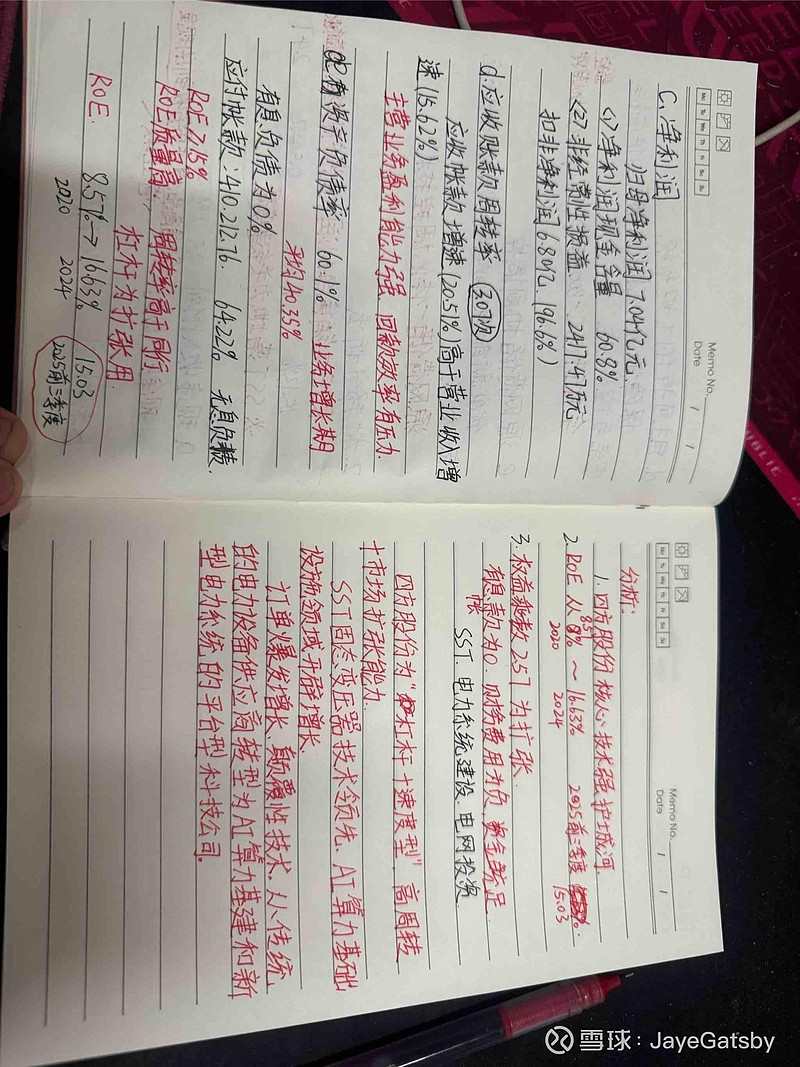 Memo No.
Date / /
Mo Tu We Th Fr Sa Su
C.净利润
归母净利润 7.04亿元.
(1)净利润现金含量 60.8%
(2)非经常性损益 2417.41万元
扣非净利润6.80亿 (96.6%)
d.应收账款周转率 (3.07次)
应收帐款增速(20.51%)高于营业收入增
速(15.62%)
主营业务盈利能力强,回款效率有压力.
资产负债率 60.1% 业务增长期
平均40.35%
有息负债为0%
应付帐款:410.21276. 64.22% 无息负债.
ROE>15%
ROE质量高. 周转率高于同行
杠杆为扩张用
ROE. 8.57%→16.63% 15.03
2020 2024 2025前三季度
Memo No.
Date / /
Mo Tu We Th Fr Sa Su
分析:
1.四方股份核心技术强护城河.
2.ROE从8.57%~16.63% 2025前三季度
2020 2024 15.03
3.权益乘数2.57为扩张.
有息帐款为0,财务费用为负,资金充足
SST、电力系统建设、电网投资.
四方股份为"杠杆+速度型",高周转
+市场扩张能力.
SST固态变压器技术领先、AI算力基础
设施领域开辟增长
订单爆发增长、颠覆性技术、从传统
的电力设备供应商转型为AI算力基建和新
型电力系统的平台型科技公司.
雪球:JayeGatsby